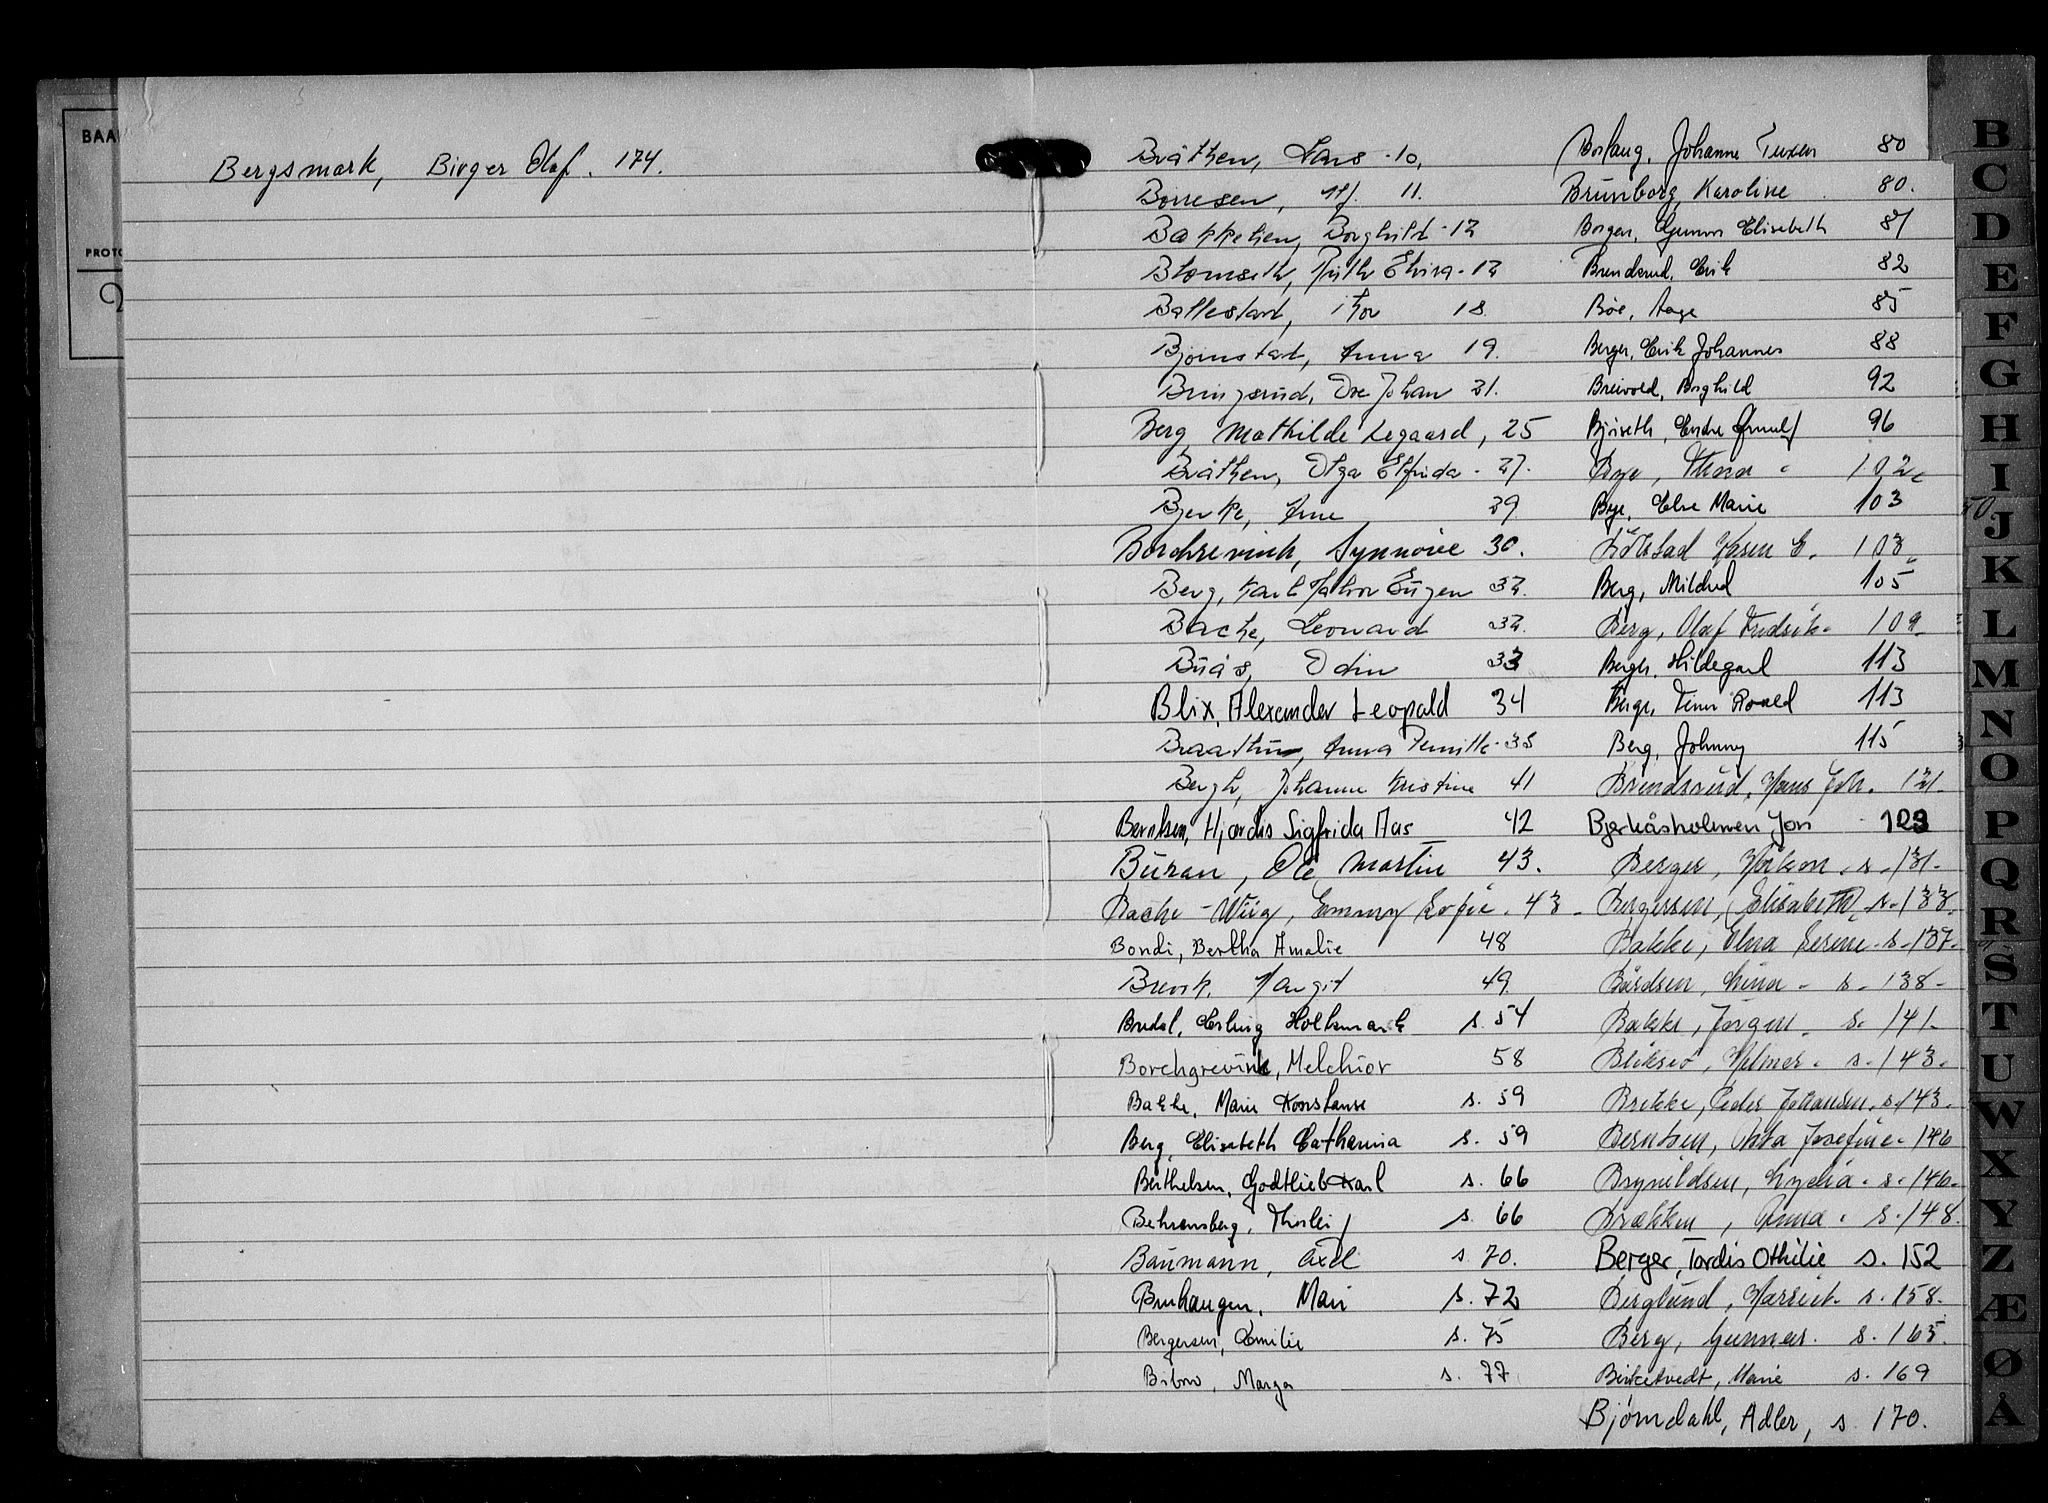 BAA
PROTO
Bergsmark, Birger Olaf. 174.
Bråthen, Lars 10.
Børresen, 11.
Bakkelien, Borghild 12
Blomseth, Elvira 12
Ballestad, Thor 18.
Bjørnstad, Anna 19.
Bringsrud, Ove Johan 21.
Berg Mathilde Legaard, 25
Bråthen, Olga Elfrida 27.
Bjerke, Arne 29.
Borchrevink, Synnøve 30.
Berg, Karl Halvor Eugen 32.
Bache, Leonard 32.
Buås, Odin 33
Blix, Alexander Leopold 34
Braathen, Anna Pernille 38
Bergh, Johanne Kristine 41
Berntsen, Hjørdis Sigfrida Aas 42
Buran, Ole Martin 43.
Bache-Wiig, Emmy Sofie. 43
Bondi, Bertha Amalie 48
Brevik, Margit 49.
Bredal, Erling Holtmark s. 54
Borchgrevink, Melchior 58
Bakke, Marie Konstanse s. 59
Berg, Elisabeth Catharina s. 59
Berthelsen, Godtlieb Karl s. 66
Behrensberg, Thorleif s. 66
Baumann, Axel s. 70.
Bruhaugen, Mari s. 72
Bergersen, Emilie s. 75
Bibow, Marga s. 77
Borlaug, Johanne Tuxen 80
Brunborg, Karoline 80.
Borgen, Gunvor Elisabeth 81
Brendsrud, Erik 82
Bøe, Aage 85
Berger, Erik Johannes 88
Breivold, Borghild 92
Bjøiseth, Endre Arnulf 96
Bye, Thora 102
Bye, Else Marie 103
Bölstad Karen E. 103.
Berg, Mildred 105
Berg, Olaf Fredrik 109
Berger, Hildegard 113
Berge, Finn Roald 113
Berg, Johnny 115
Brendsrud, Hans Joh. 121.
Bjerkåsholmen Jon 123
Berger, Håkon s. 131.
Bergersen, Elisabeth s. 133.
Bakke, Elna Serine s. 137.
Bårdsen, Mina s. 138.
Bakke, Jørgen s. 141.
Bliksø, Hilmer s. 143.
Brekke, Peder Johansen s. 143.
Berntsen, Asta Josefine 146
Brynildsen, Lydia s. 146.
Brækken, Anna s. 148.
Berger, Tordis Othilie s. 152
Berglund, Harriet s. 158.
Berg, Gunnar s. 165.
Birketvedt, Marie s. 169
Bjørndahl, Adler, s. 170.
B
C
D
E
F
G
H
I
J
K
L
M
N
O
P
Q
R
S
T
U
W
X
Y
Z
Æ
Ø
Å